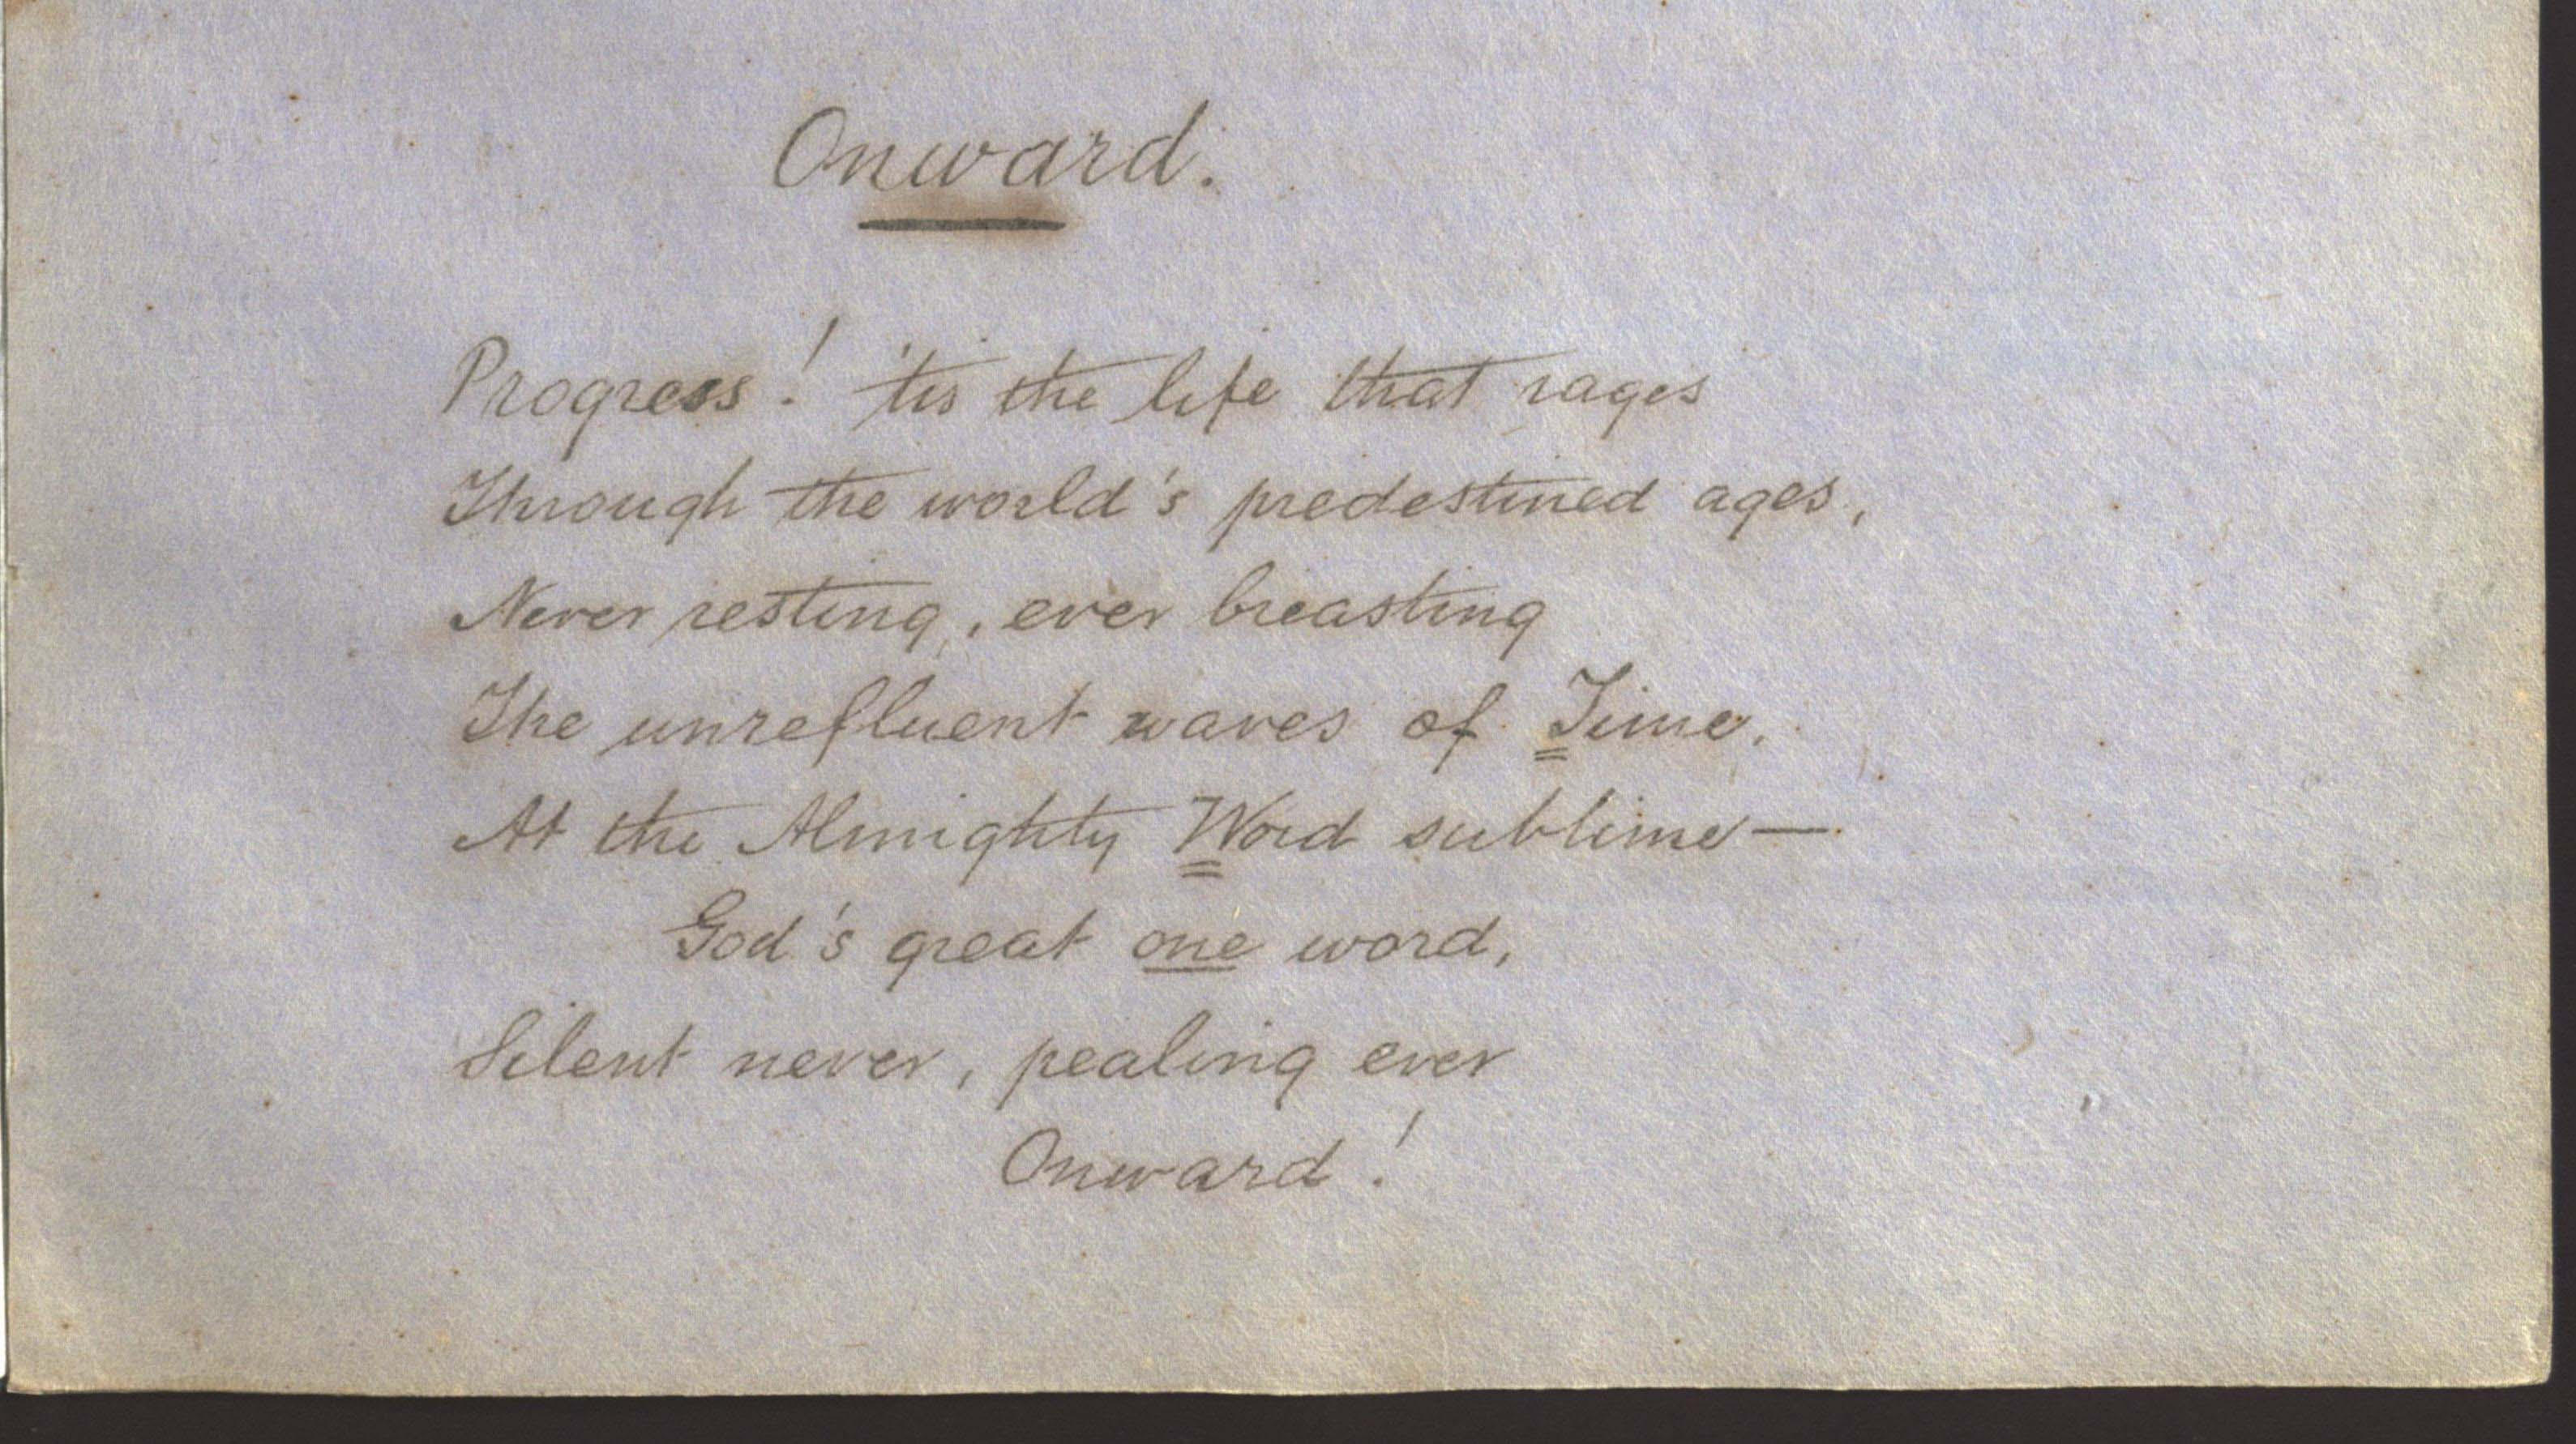 Onward.
Progress! 'tis the life that rages
Through the world's predestined ages,
Never resting, ever breasting
The unrefluent waves of Time,
At the Almighty Word sublime—
God's great one word,
Silent never, pealing ever
Onward!